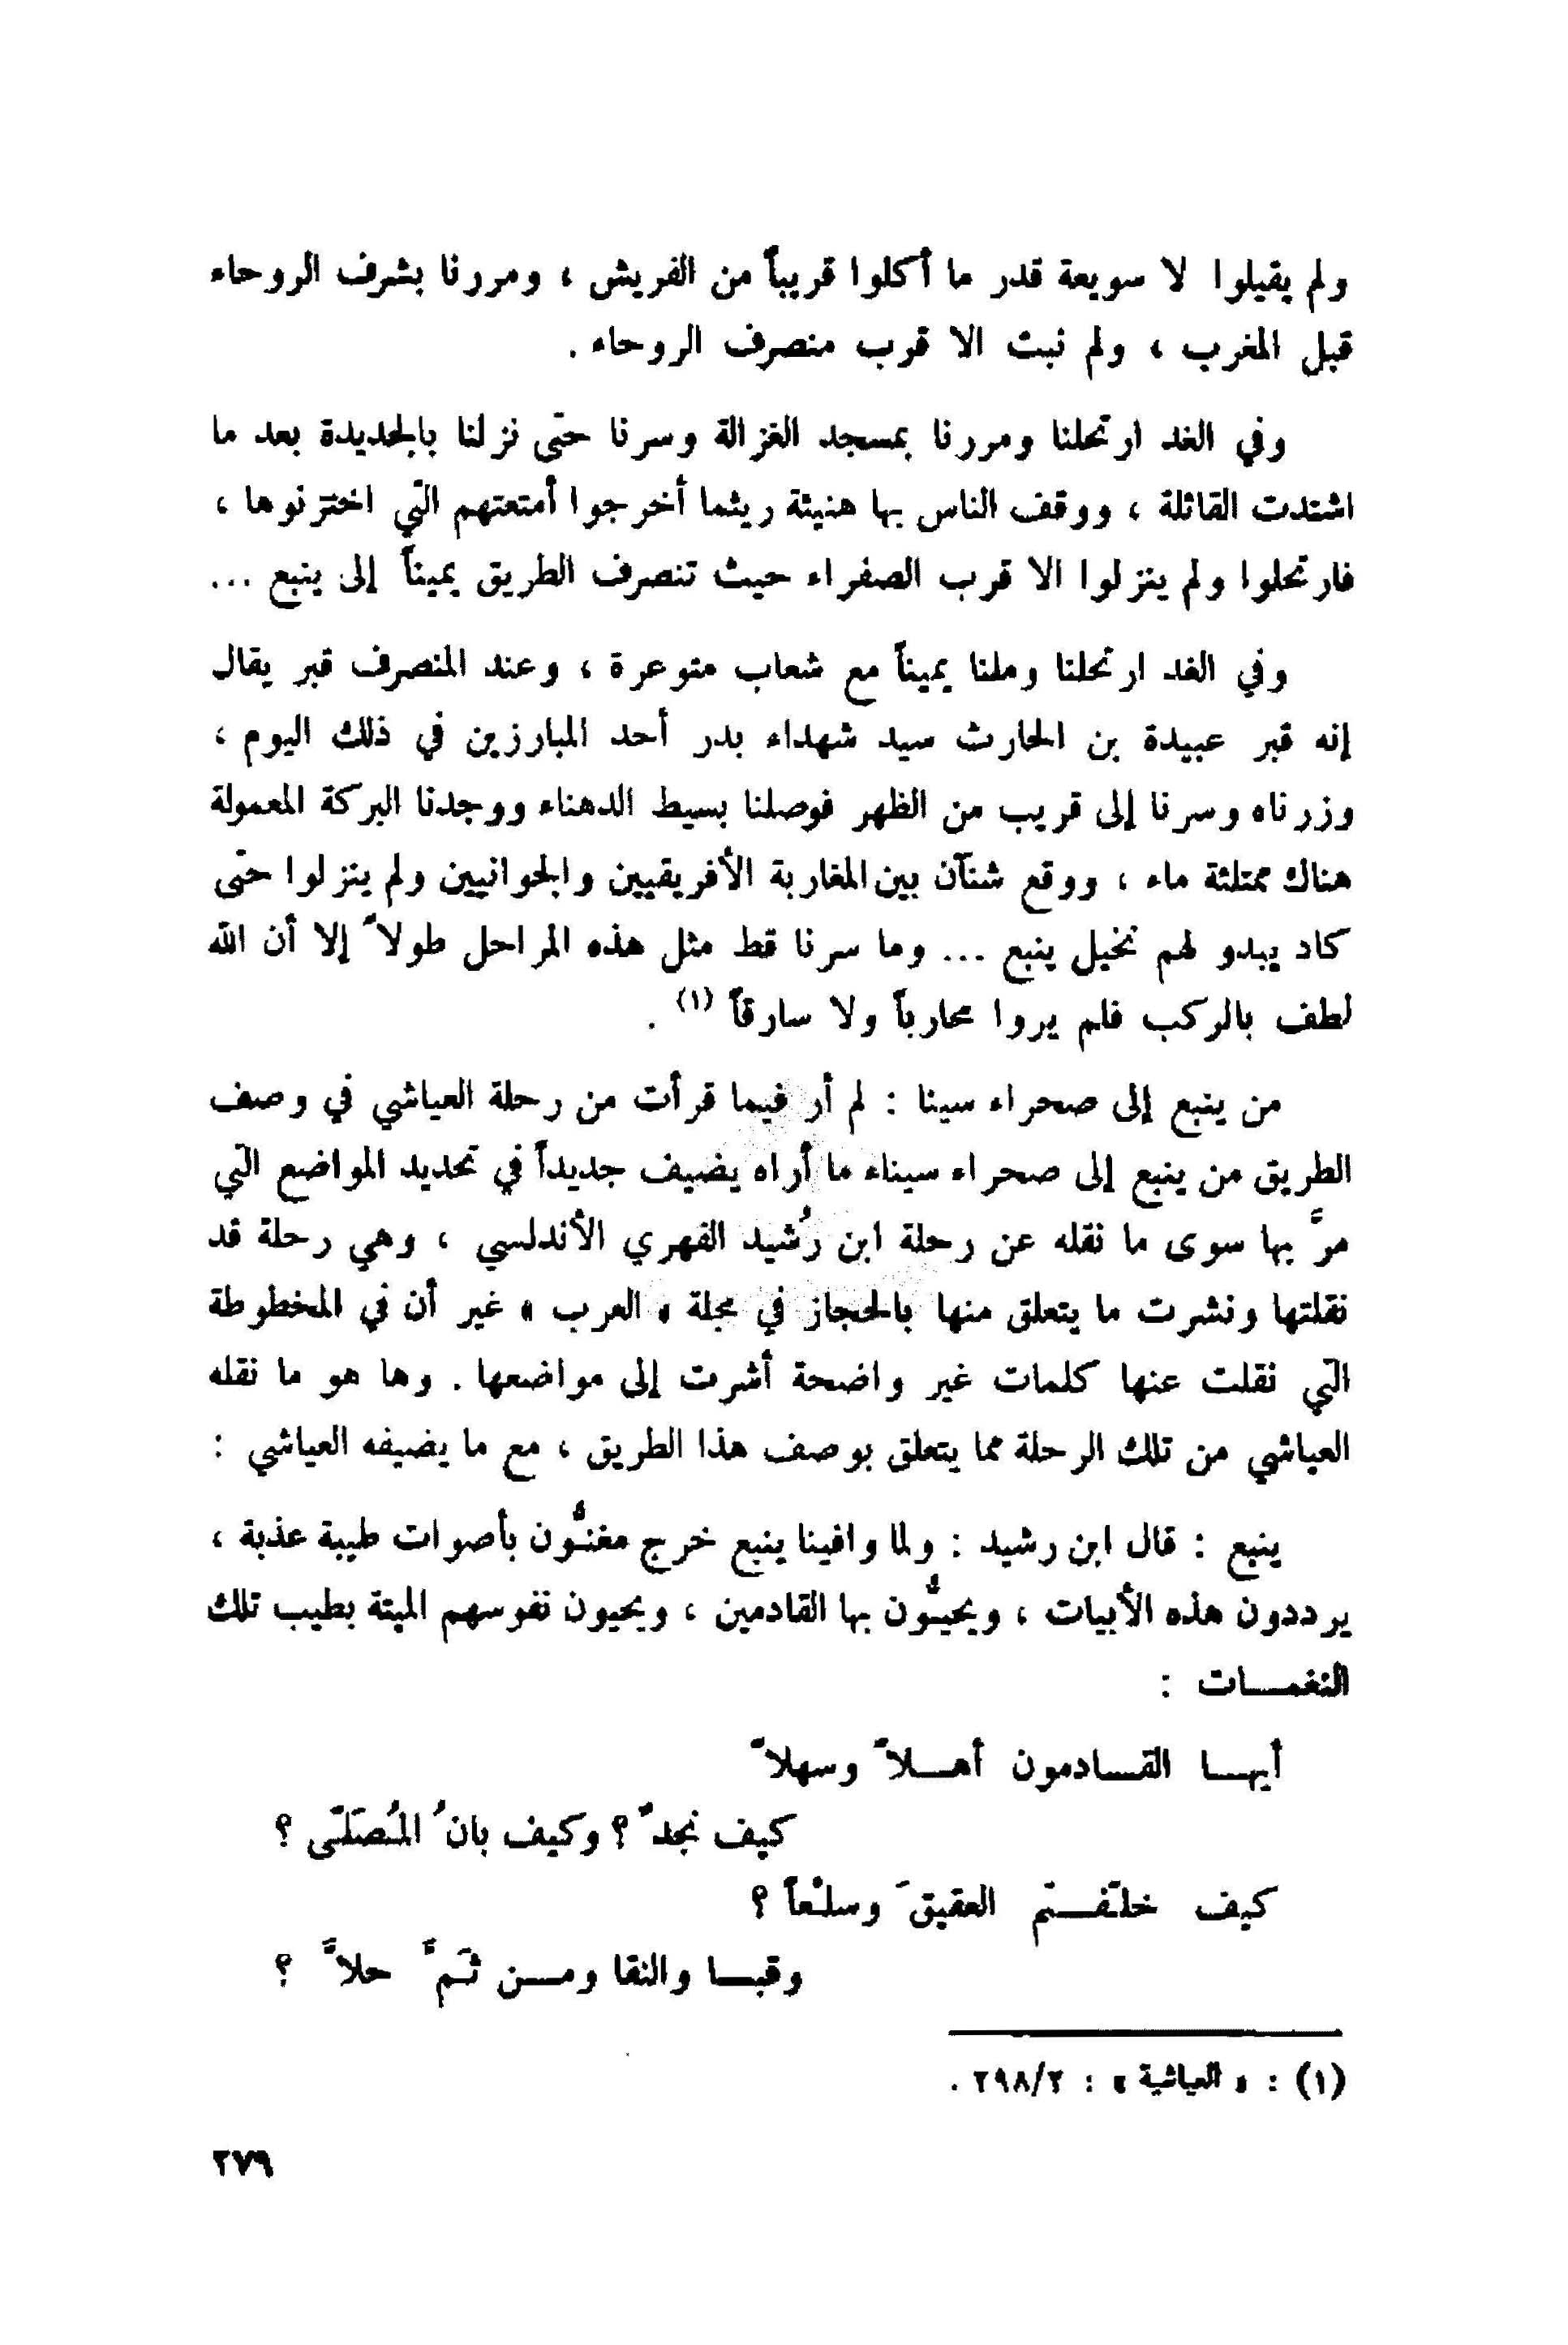 ولم يقيلوا لا سويعة قدر ما أكلوا قريباً من الفريش ، ومررنا بشرف الروحاء
قبل المغرب ، ولم نبت الا قرب منصرف الروحاء .
وفي الغد ارتحلنا ومررنا بمسجد الغزالة وسرنا حتى نزلنا بالجديدة بعد ما
اشتدت القائلة ، ووقف الناس بها هنيئة ريثما أخرجوا أمتعتهم التي اختزنوها ،
فارتحلوا ولم ينزلوا الا قرب الصفراء حيث تنصرف الطريق يميناً إلى ينبع ...
وفي الغد ارتحلنا وملنا يميناً مع شعاب متوعرة ، وعند المنصرف قبر يقال
إنه قبر عبيدة بن الحارث سيد شهداء بدر أحد المبارزين في ذلك اليوم ،
وزرناه وسرنا إلى قريب من الظهر فوصلنا بسيط الدهناء ووجدنا البركة المعمولة
هناك ممتلئة ماء ، ووقع شنآن بين المغاربة الأفريقيين والجوانيين ولم ينزلوا حتى
كاد يبدو لهم نخيل ينبع ... وما سرنا قط مثل هذه المراحل طولاً إلا أن الله
لطف بالركب فلم يروا محارباً ولا سارقاً (١) .
من ينبع إلى صحراء سينا : لم أر فيما قرأت من رحلة العياشي في وصف
الطريق من ينبع إلى صحراء سيناء ما أراه يضيف جديداً في تحديد المواضع التي
مرَّ بها سوى ما نقله عن رحلة ابن رُشيد الفهري الأندلسي ، وهي رحلة قد
نقلتها ونشرت ما يتعلق منها بالحجاز في مجلة « العرب » غير أن في المخطوطة
التي نقلت عنها كلمات غير واضحة أشرت إلى مواضعها . وها هو ما نقله
العياشي من تلك الرحلة مما يتعلق بوصف هذا الطريق ، مع ما يضيفه العياشي :
ينبع : قال ابن رشيد : ولما وافينا ينبع خرج مغنُّون بأصوات طيبة عذبة ،
يرددون هذه الأبيات ، ويحيُّون بها القادمين ، ويحيون نفوسهم الميتة بطيب تلك
النغمــات :
أيهــا القــادمون أهــلاً وسهلاً
كيف نجدٌ ؟ وكيف بانُ المُصَلّى ؟
كيف خلّفــتم العقيقَ وسلْعاً ؟
وقبــا والنقا ومــن ثَمَّ حلاًّ ؟
(١) : « العياشية » : ٢٩٨/٢ .
٢٧٩